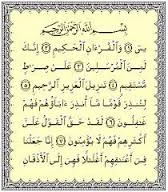 بِسْمِ اللَّهِ الرَّحْمَٰنِ الرَّحِيمِ
يسٓ ١ وَالْقُرْءَانِ الْحَكِيمِ ٢ إِنَّكَ
لَمِنَ الْمُرْسَلِينَ ٣ عَلَىٰ صِرَاطٍ
مُّسْتَقِيمٍ ٤ تَنزِيلَ الْعَزِيزِ الرَّحِيمِ ٥
لِتُنذِرَ قَوْمًا مَّا أُنذِرَ ءَابَاؤُهُمْ فَهُمْ
غَٰفِلُونَ ٦ لَقَدْ حَقَّ الْقَوْلُ عَلَىٰ
أَكْثَرِهِمْ فَهُمْ لَا يُؤْمِنُونَ ٧ إِنَّا جَعَلْنَا
فِي أَعْنَٰقِهِمْ أَغْلَٰلًا فَهِيَ إِلَى الْأَذْقَانِ